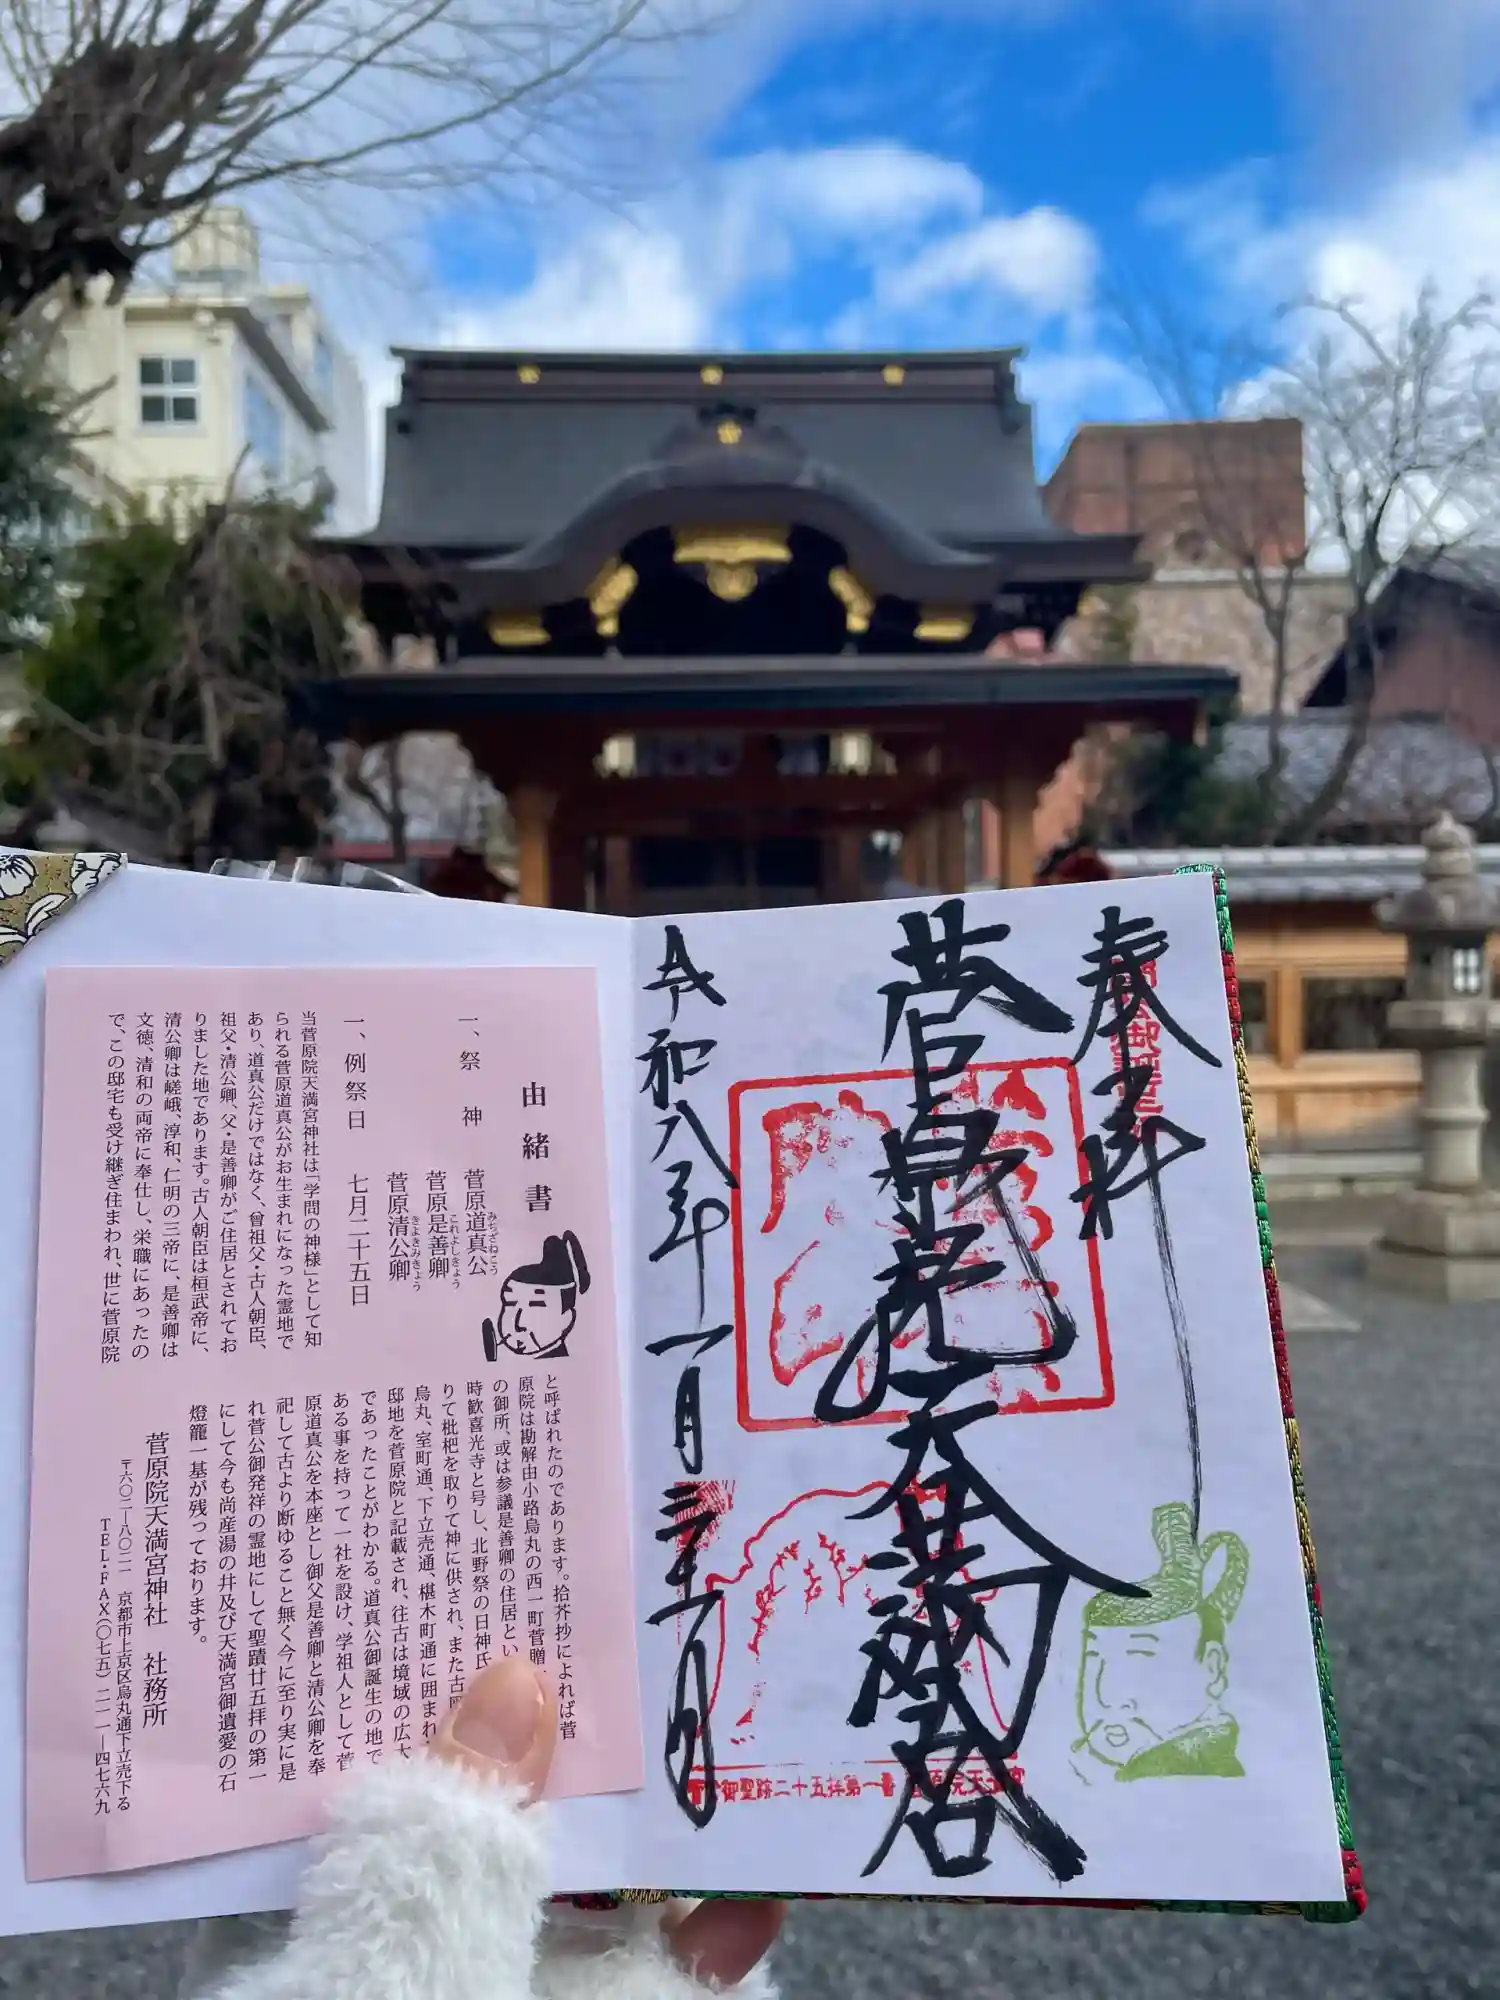 奉拝
菅原院天満宮
令和八年一月二十五日
菅公御誕生
菅公御聖跡二十五拝第一番 菅原院天満宮
由緒書
一、祭神 菅原道真公
みちざねこう
菅原是善卿
これよしきょう
菅原清公卿
きよきみきょう
一、例祭日 七月二十五日
当菅原院天満宮神社は「学問の神様」として知
られる菅原道真公がお生まれになった霊地で
あり、道真公だけではなく、曾祖父・古人朝臣、
祖父・清公卿、父・是善卿がご住居とされてお
りました地であります。古人朝臣は桓武帝に、
清公卿は嵯峨、淳和、仁明の三帝に、是善卿は
文徳、清和の両帝に奉仕し、栄職にあったの
で、この邸宅も受け継ぎ住まわれ、世に菅原院
と呼ばれたのであります。拾芥抄によれば菅
原院は勘解由小路烏丸の西一町菅贈
の御所、或は参議是善卿の住居とい
時歓喜光寺と号し、北野祭の日神氏
りて枇杷を取りて神に供され、また古
烏丸、室町通、下立売通、椹木町通に囲まれ
邸地を菅原院と記載され、往古は境域の広大
であったことがわかる。道真公御誕生の地で
ある事を持って一社を設け、学祖人として菅
原道真公を本座とし御父是善卿と清公卿を奉
祀して古より断ゆること無く今に至り実に是
れ菅公御発祥の霊地にして聖蹟廿五拝の第一
にして今も尚産湯の井及び天満宮御遺愛の石
燈籠一基が残っております。
菅原院天満宮神社 社務所
〒六〇二―八〇二一 京都市上京区烏丸通下立売下る
TEL・FAX(〇七五)二一一―四七六九